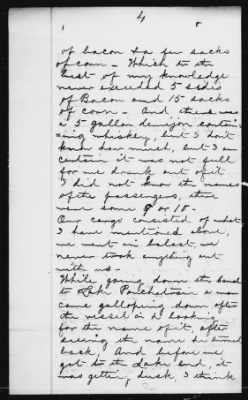 4
of bacon & a few sacks
of corn - Which to the
best of my knowledge
never exceeded 5 sides
of Bacon and 15 sacks
of corn - And there was
a 5 gallon demijon contain
ing whiskey, but I don't
know how much, but I am
certain it was not full
for we drank out of it
I did not know the names
of the passengers, there
were some 8 or 10 -
Our cargo consisted of what
I have mentioned above,
we went in balast, we
never took anything out
with us -
While going down the canal
to Lake Pontchatrain a man
came galloping down after
the vessel in a looking
for the name of it, after
seeing the name he turned
back, And before we
got to the Lake end, it
was getting dusk, I think